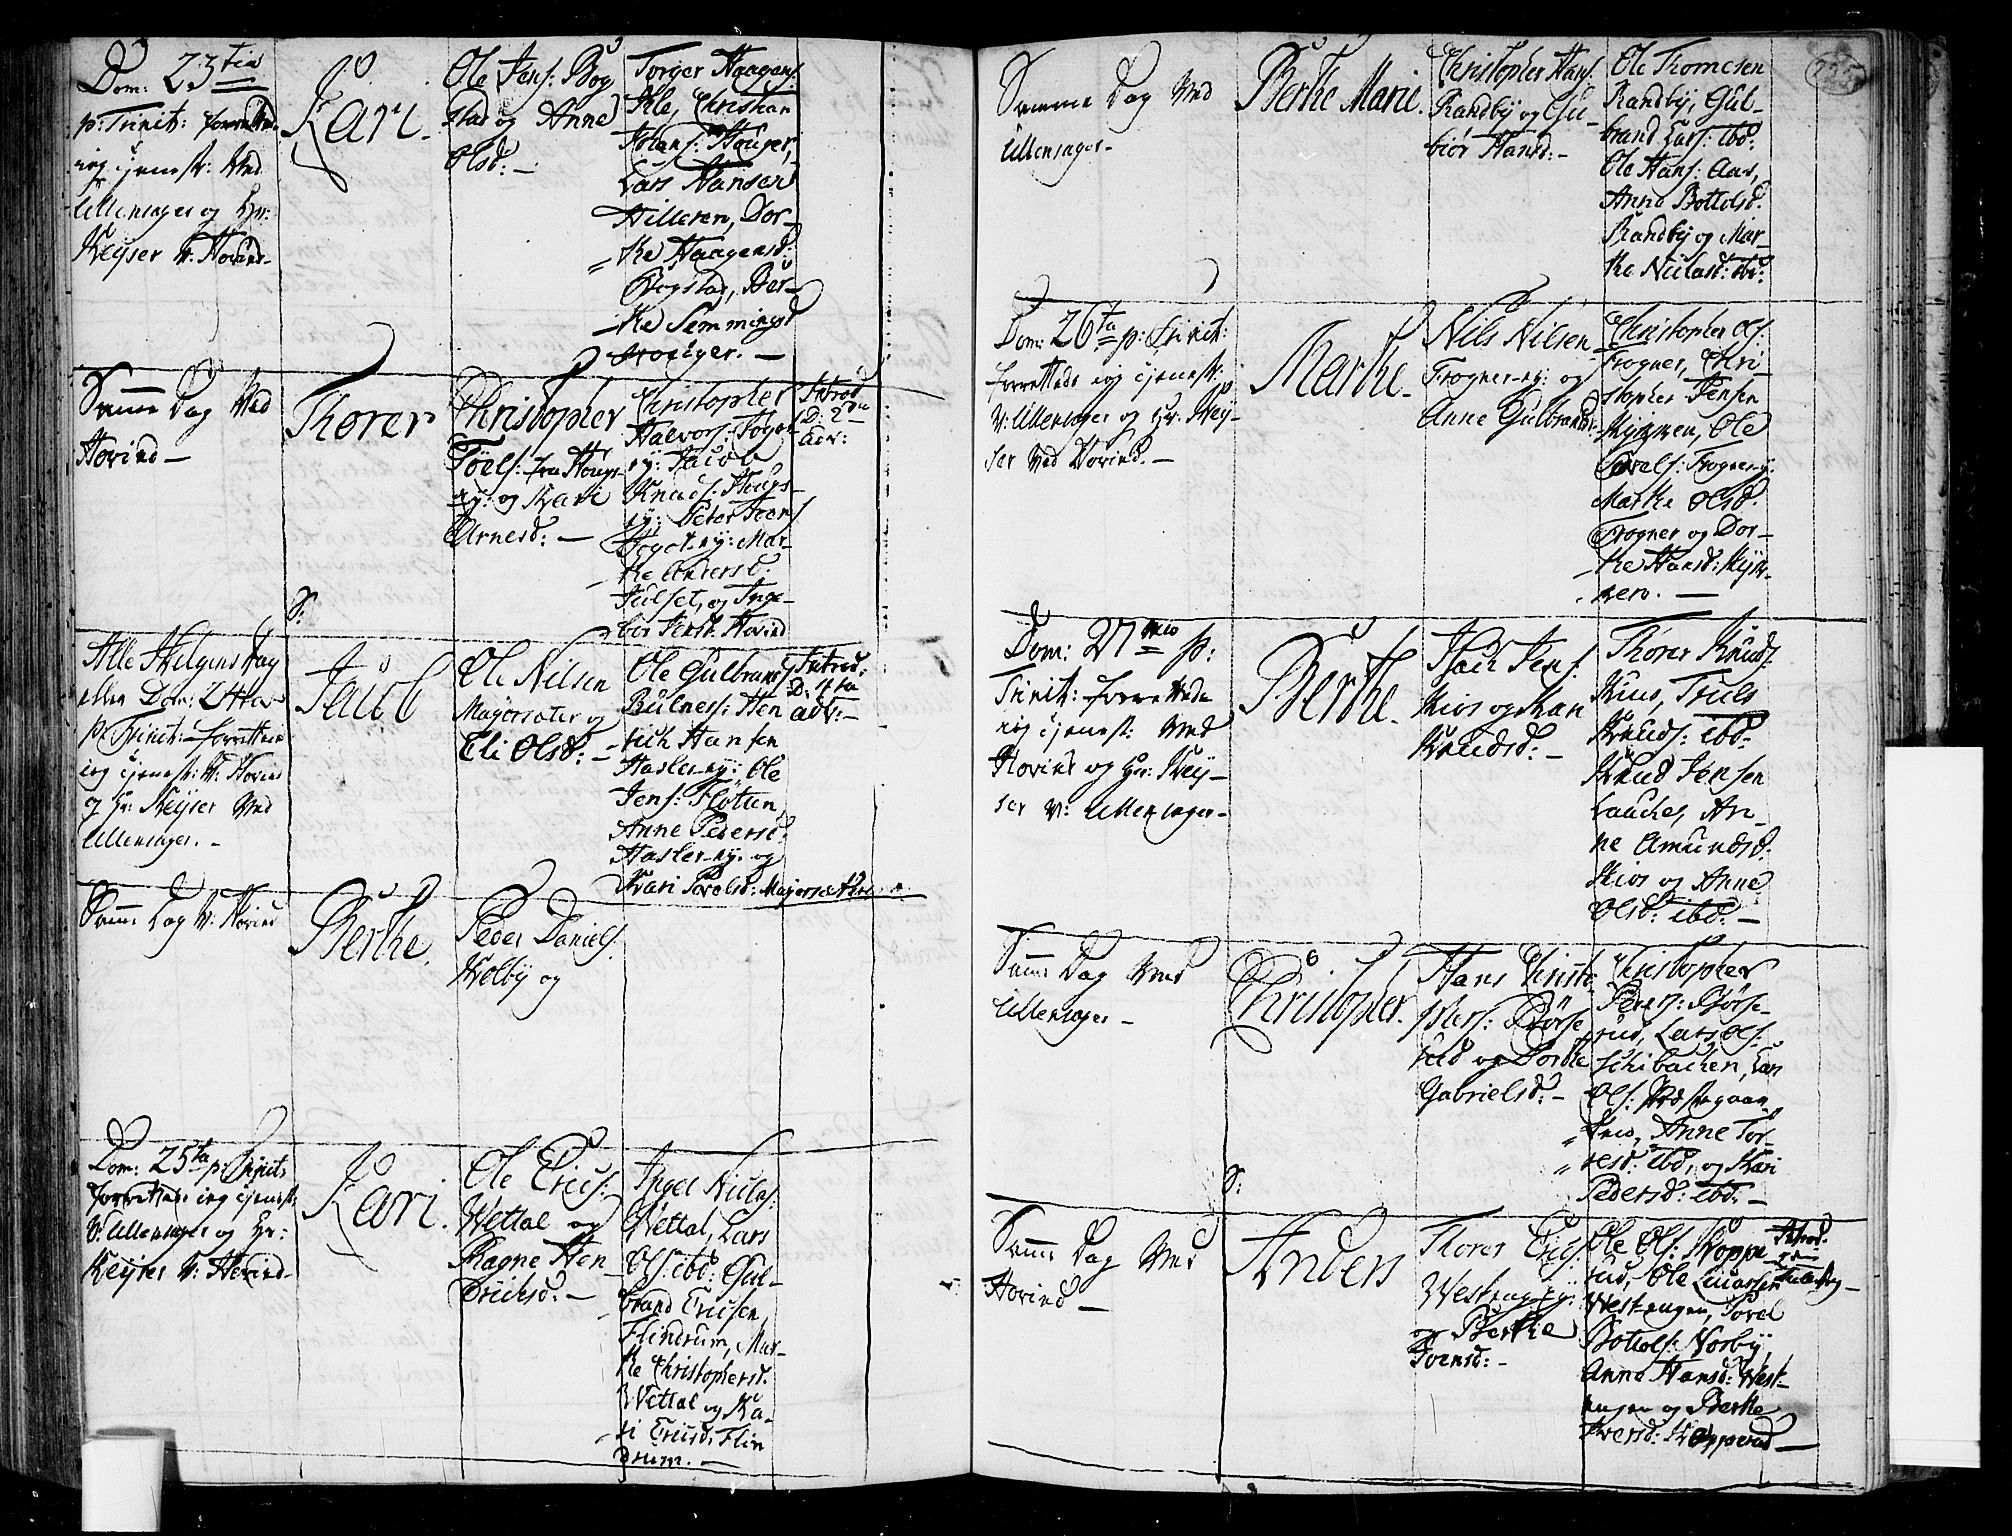 Dom: 23tia
p: Trinit: forrettede
ieg tjenest: Ved
Ullensager og Hr:
Keyser V: Hovind
Kari
Ole Jens: Bog
stad og Anne
Olsd: -
Torger Haagens:
Ille, Christian
Johans: Houger,
Lars Hansen
Hilleren, Dor-
the Haagensd:
Bogstad, Ber-
the Semmingsd
Houger. -
Samme Dag Ved
Hovind -
Thorer
Christopher
Joels: fra Hougs-
ey: og Kari
Arnesd: -
Christopher
Halvors:
ey: Jacob
Knuds: Hougs-
ey: Peter Ivers
ey: Mar-
the Andersd:
Julset, og Inge-
bor Jensd. Hovind
Introd
D: 2den
Adv:
S:
Alle Helgens Dag
eller Dom: 24ta
p: Trinit: forrettede
ieg tjenest: V: Hovind
og Hr: Keyser Ved
Ullensager. -
Jacob
Ole Nilsen
Magersæter og
Eli Olsd: -
Ole Gulbrans:
Bulness: Hen
rich Hansen
Hasler-ey: Ole
Jens: Fløten,
Anne Pedersd:
Hasler-ey: og
Kari Povelsd: Magersætter
Introd:
D: 4ta
adv: -
Samme Dag V: Hovind
Berthe
Peder Daniels:
Wolby og
Dom: 25ta p: Trinit:
forrettede ieg tjenest:
V: Ullensager og Hr:
Keyser V: Hovind -
Kari
Ole Erics:
Wettal og
Ragne Hen
dricksd: -
Ingel Niels:
Wettal, Lars
Ols: ibd: Gul-
brand Ericsen
Flindrum, Mar-
the Christophersd.
Wettal og Ka-
ri Ericsd: Flin
drum. -
225
Samme Dag Ved
Ullensager -
Berthe Marie.
Christopher Hans:
Randby og Gu-
biør Hansd: -
Ole Thomesen
Randby, Gul-
brand Lars: ibd:
Ole Hans: Aas,
Anne Bottolsd.
Randby og Mar-
the Nielsd: ibd:
Dom: 26ta p: Trinit:
forrettede ieg tjenest:
V: Ullensager og Hr: Key-
ser Ved Hovind. -
Marthe.
Nils Nilsen
Frogner-ey: og
Anne Gulbrandsd:
Christopher Ols:
Frogner, Chri
stopher Jensen
Ole
Povels: Frogner-ey:
Marthe Olsd.
Frogner og Dor-
the Hansd:
Dom: 27mo p:
Trinit: forrettede
ieg tjenest: Ved
Hovind og Hr: Key-
ser V: Ullensager -
Berthe.
Isach Jens:
Kios og Kari
Knudsd: -
Thorer Knuds:
Kius, Truls
Knuds: ibd:
Knud Jensen
Lauche, An-
ne Amundsd:
Kios og Anne
Olsd: ibd: -
Samme Dag Ved
Ullensager -
Christopher.
Hans Christo
phers: Børse
rud og Dorthe
Gabrielsd: -
Christopher
Peders: Børse-
rud, Lars Ols:
Schibachen, Lars
Ols:
Anne Tor-
resd: ibd: og Kari
Pedersd: ibd: -
S:
Samme Dag Ved
Hovind -
Anders
Thorer Erics:
Westengey:
og Berthe
Iversd: -
Ole Ols: Koppe
rud, Ole Lucassen
Westengen, Povel
Bottols: Norby,
Anne Hansd: West-
engen og Berthe
Iversd: Kopperud -
Introd.